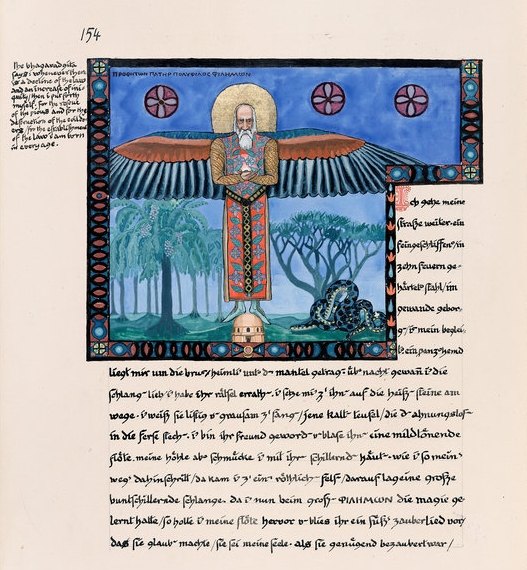 154
The bhagavadgita
says: whenever there
is a decline of the law
and an increase of ini-
quity/ then i put forth
myself. for the rescue
of the pious and for the
destruction of the evildo
ers, for the establishment
of the law i am born
in every age.
ΠΡΟΦΗΤΩΝ ΠΑΤΗΡ ΠΟΛΥΦΙΛΟΣ ΦΙΛΗΜΩΝ
Ich gehe meine
straße weiter. ein
feingeschliffen/ in
zehn feuern ge-
härtet stahl/ im
gewande gebor-
g/ i mein beglei-
t. ein panzerhemd
liegt mir um die brust/ heimli unt d mantel getrag. üb nacht gewañ i die
schlang lieb/ i habe ihr räthsel errath. i seze mi z' ihn auf die heiß steine am
wege. i weiß sie listig u grausam z' fang/ jene kalt teufel/ die d ahnungslos
in die ferse stech. i bin ihr freund geword u blase ihn eine mildtönende
flöte. meine höhle ab schmücke i mit ihr schillernd häut. wie i so mein
weg dahinschritt/ da kam i z' ein röthlich fels/ darauf lag eine große
buntschillernde schlange. da i nun beim groß ΦΙΛΗΜΩΝ die magie ge-
lernt hatte/ so holte i meine flöte hervor u blies ihr ein süß zauberlied vor/
das sie glaub machte/ sie sei meine seele. als sie genügend bezaubert war/